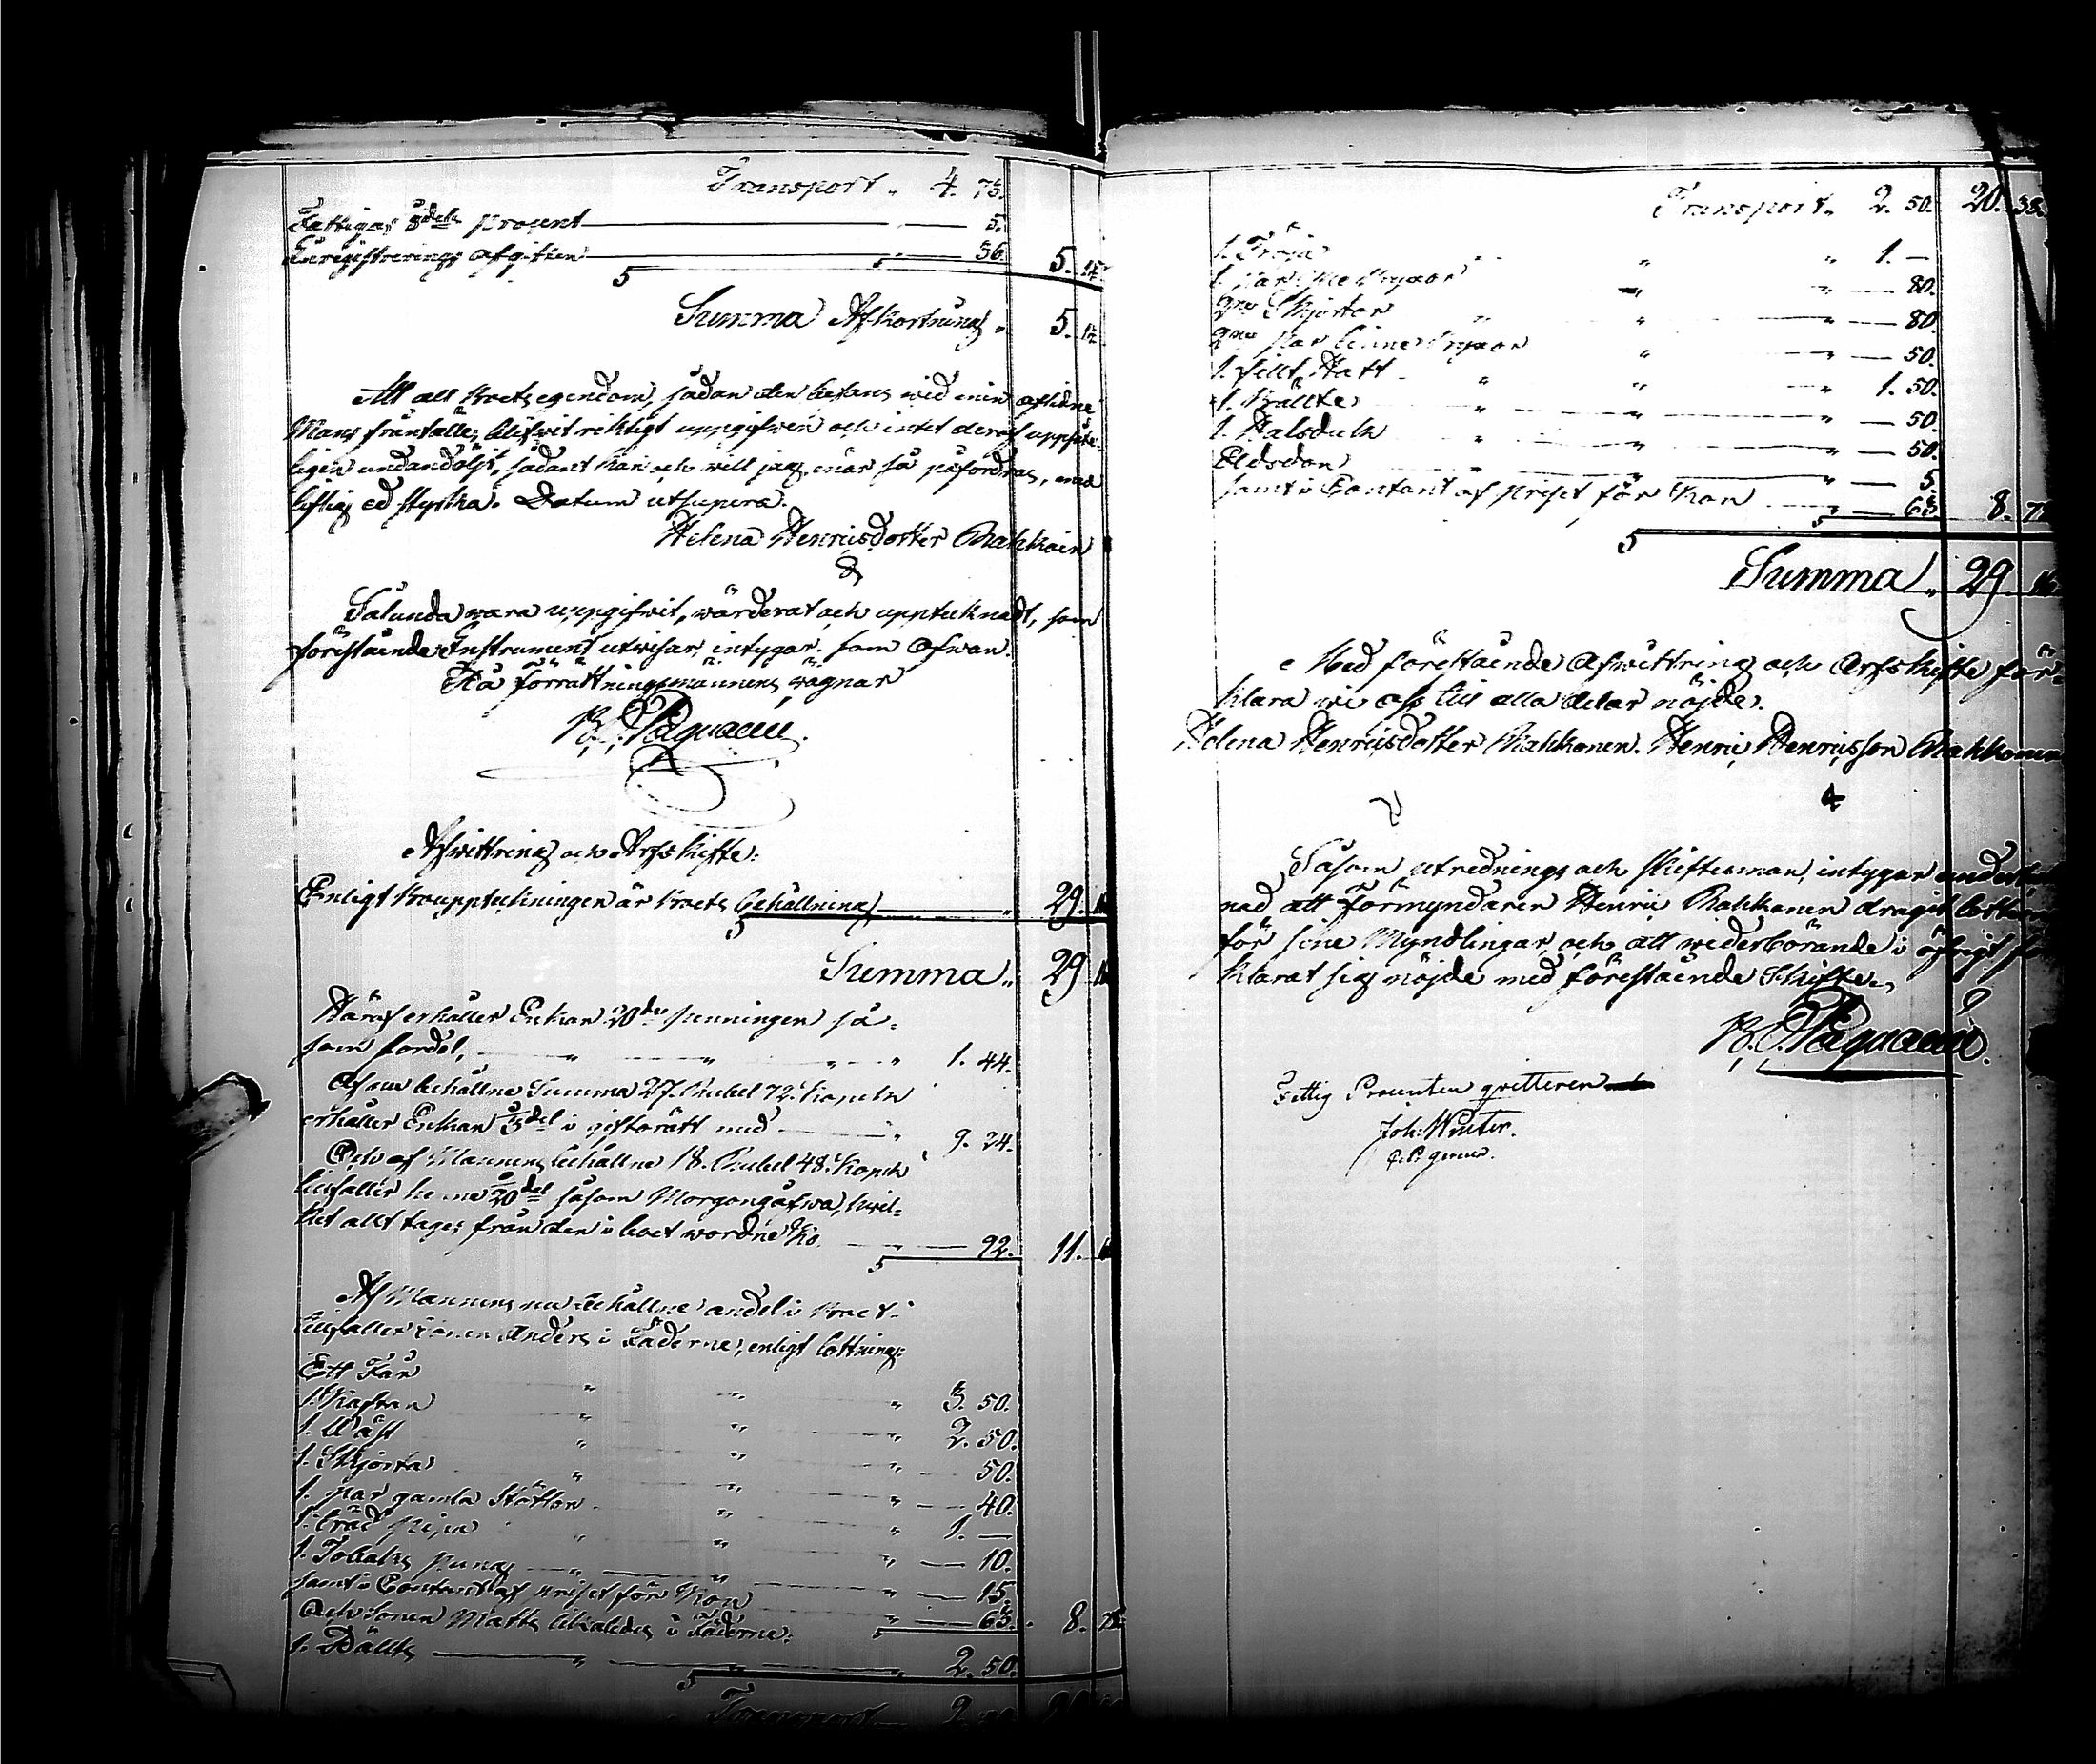 Transport „ 4. 75.
Fattigas 8dels procent 5.
Inregistrerings afgiften 36. 5. 12
Summa Afkortning „ 5. 12
Att all Boets egendom, sådan den befans wid min aflidne
Mans frånfälle, blifwit riktigt uppgifwen och intet deraf uppsåt-
ligen undandöljt, sådant kan och will jag, när så påfordras, med
liflig ed styrka. Datum utsupera.
Helena Henricsdotter
Sålunda wara uppgifwit, wärderat och upptecknadt, som
förestående Instrument utwisar, intygar. som Ofwan.
På förrättningsmännens wägnar
Afwittring och Arfskifte.
Enligt Bouppteckningen är Boets behållning 29.
Summa „ 29
Häraf erhåller Enkan 20de penningen så-
som fördel, „ „ „ „ 1. 44.
Af den behållne Summa 27. Rubel 72. Kopek
erhåller Enkan 1/3del i giftorätt med „ 9. 24.
Och af Mannens behållne 18. Rubel 48. Kopek
tillfaller henne 1/20del såsom Morgongåfwa, hwil-
ket allt tages från den i boet wordne Ko. 92. 11.
Af Mannens nu behållne andel i Boet
tillfaller sonen Anders i Fäderne, enligt lottning:
Ett Får „ „ „ 3. 50.
1. Kaftan „ „ „ 2. 50.
1. Wäst „ „ „ 50.
1. Skjorta „ „ „ 40.
1. par gamla Stöflor „ „ 1. —
1. pipa „ „ „ 10.
1. Tobaks pung „ „ „ 15.
samt i Contant af priset för Kon „ 63. 8. 78
Och Sonen Matts tillades i Fäderne:
1. Bällte „ „ „ 2. 50.
Transport
Transport „ 2. 50. 20. 38.
1. Tröja „ „ 1. —
1. par „ „ 80.
2ne Skjortor „ „ „ 80.
2ne par linne byxor „ „ 50.
1. filt Hatt „ „ „ 1. 50.
1. Bällte „ „ „ 50.
1. Halsduk „ „ „ 50.
Eldsdon „ „ „ 5.
samt i Contant af priset för Kon „ 63. 8. 78
Summa „ 29. 16
Med förestående Afwittring och Arfskifte för-
klara wi oss till alla delar nöjde.
Helena Henricsdotter Henric Henricsson
Såsom utrednings och skiftesman, intygar
nad att Förmyndaren Henric dragit lotten
för sine Myndlingar, och att wederbörande i öfrigt för
klarat sig nöjde med förestående Skifte.
Fattig Procenten qvitteren
Joh: Winter.